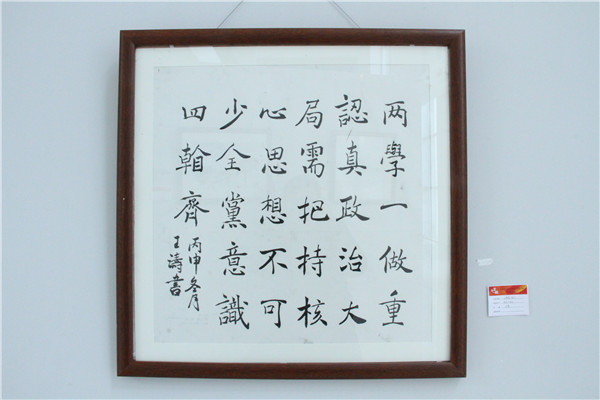 两學一做重
認真政治大
局需把持核
心思想不可
少全黨意識
四翰齊
丙申冬月
王濤書